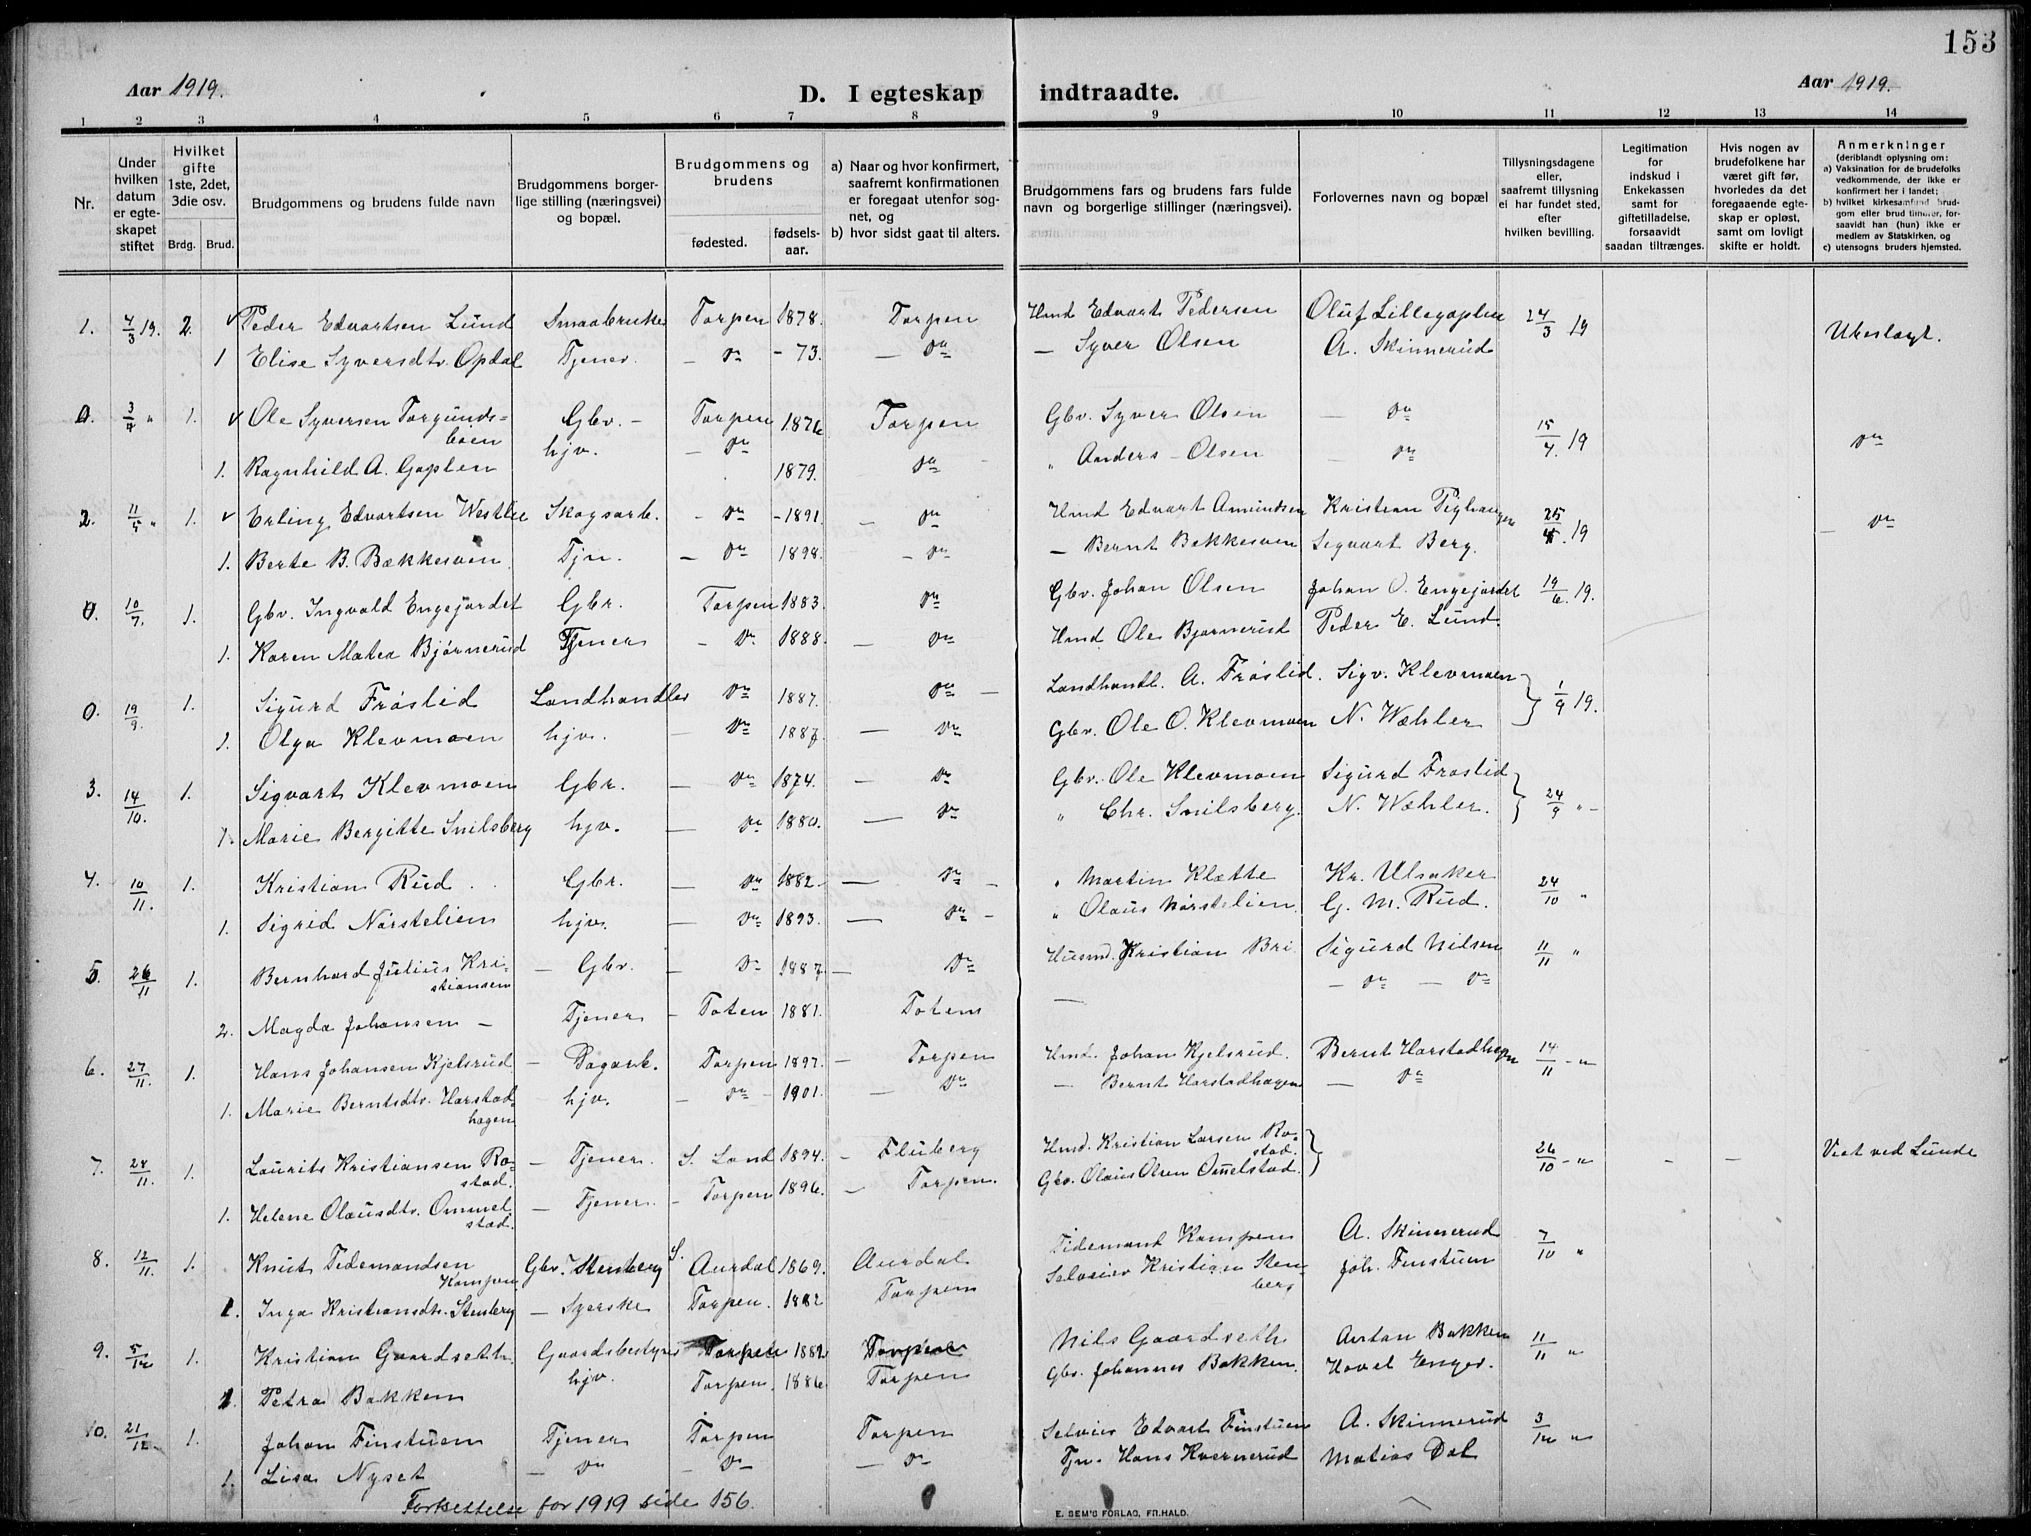 153
Aar 1919.
D. I egteskap indtraadte.
Aar 1919.
1 2 3 4 5 6 7 8 9 10 11 12 13 14
Nr.
Under hvilken datum er egteskapet stiftet
Hvilket gifte 1ste, 2det, 3die osv.
Brdg. Brud.
Brudgommens og brudens fulde navn
Brudgommens borgerlige stilling (næringsvei) og bopæl.
Brudgommens og brudens
fødested.
fødselsaar.
a) Naar og hvor konfirmert, saafremt konfirmationen er foregaat utenfor sognet, og
b) hvor sidst gaat til alters.
Brudgommens fars og brudens fars fulde navn og borgerlige stillinger (næringsvei).
Forlovernes navn og bopæl
Tillysningsdagene eller, saafremt tillysning ei har fundet sted, efter hvilken bevilling.
Legitimation for indskud i Enkekassen samt for giftetilladelse, forsaavidt saadan tiltrænges.
Hvis nogen av brudefolkene har været gift før, hvorledes da det foregaaende egteskap er opløst, samt om lovligt skifte er holdt.
Anmerkninger
(deriblandt oplysning om:
a) Vaksination for de brudefolks vedkommende, der ikke er konfirmert her i landet;
b) hvilket kirkesamfund brudgom eller brud tilhører, forsaavidt han (hun) ikke er medlem av Statskirken, og
c) utensogns bruders hjemsted.
1. 4/3 19. 2. Peder Edvartsen Lund Smaabruker Torpen 1878. Torpen Hmd Edvart Pedersen Oluf Lillegaplen 24/3 19 Ubeslægt.
1 Elise Syversdtr. Opdal Tjener. — do - 73. — do — Syver Olsen A. Skinnerud
0. 3/7 " 1. Ole Syversen Torgunds= Gbr. - Torpen 1876 Torpen Gbr. Syver Olsen — do 15/4. 19 do
boen hjv. — do
1. Ragnhild A. Gaplen 1879. do " Anders Olsen — do
2. 11/5 " 1. Erling Edvartsen Westlie Skogsarb. - do - 1891. — do Hmd Edvart Amundsen Kristian 25/4. 19 — do
1. Berte B. Bækkesven Tjn. — do 1898. - do — Bernt Bækkesven Sigvart Berg.
0. 10/7. 1. Gbr. Ingvald Engejordet Gbr. Torpen 1883. do Gbr. Johan Olsen Johan O. Engejordet 19/6. 19.
1. Karen Matea Bjørnerud Tjener - do 1888. — do Hmd Ole Bjørnerud Peder E. Lund
0. 19/9. 1. Sigurd Frøslid Landhandler do 1887. do — Landhandl. A. Frøslid. Sigv. Klevmoen 1/9 19.
1. Olga Klevmoen hjv. — do 1887. — do Gbr. Ole O. Klevmoen N. Wæhler
3. 14/10. 1. Sigvart Klevmoen Gbr. — do 1874. — do Gbr. Ole Klevmoen Sigurd Frøslid 24/9 " -
1. Marie Bergitte Snilsberg hjv. — do 1880. — do " Chr. Snilsberg. N. Wæhler.
4. 10/11. 1. Kristian Rud Gbr. — do 1882 — do " Martin Klætte Kr. Ulsaker 24/10 "
1. Sigrid Nørstelien hjv. — do 1893. — do " Olaus Nørstelien. G. M. Rud.
5. 26/11 1. Bernhard Julius Kri- — Gbr. - do 1887 — do Husmd. Kristian Bri Sigurd Nilsen 11/11 "
stiansen — do — do
2. Magda Johansen — Tjener - Toten 1881. Toten —
6. 27/11. 1. Hans Johansen Kjelsrud — Dagarb. Torpen 1897. — Torpen Hmd. Johan Kjelsrud. Bernt Harstadhagen 14/11 - "
1. Marie Berntsdtr. Harstad- hjv. - do 1901. — do — Bernt Harstadhagen — do
hagen
7. 28/11. 1. Laurits Kristiansen Ro- — Tjener. S. Land 1894. - Fluberg Hmd. Kristian Larsen Ro- 26/10 - " - - Viet ved Lunde
stad. stad.
1. Helene Olausdtr. Ommel — Tjener. - Torpen 1896. - Torpen. Gbr. Olaus Olsen Omelstad.
stad.
8. 12/11. 1. Knut Tidemandsen Gbr. Stenberg S. Aurdal 1869. Aurdal Tidemand Kampen A. Skinnerud 7/10 "
Kampen
1. Inga Kristiansdtr. Stenberg — Syerske Torpen. 1882 Torpen Selveier Kristian Sten- Joh. Finstuen
berg
9. 5/12 1. Kristian Gaardseth. Gaardsbestyrer Torpen 1882 Torpen Nils Gaardseth Anton Bakken 11/11 "
1. Petra Bakken hjv. Torpen. 1886 Torpen Gbr. Johannes Bakken. Hovel Enger.
10. 21/12. 1. Johan Finstuen Tjener Torpen Torpen Selveier Edvart Finstuen A. Skinnerud 3/12 "
1. Lisa Nyset — do - do — do Tjn. Hans Kvernerud Matias Dal
Fortsettelse for 1919 side 156.
E. SEM'S FORLAG, FR.HALD.